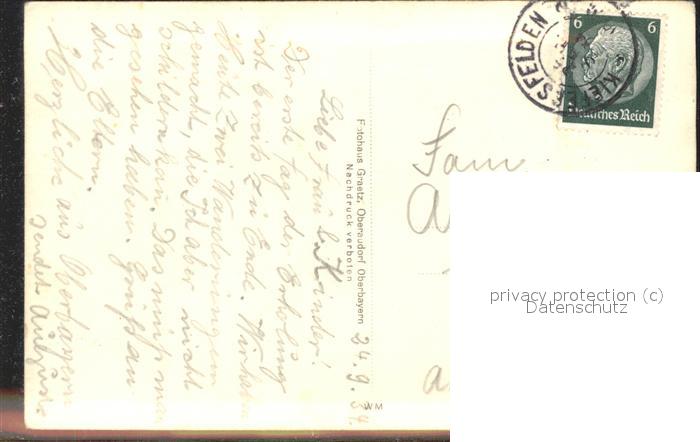 24.9.34.
Liebe Frau u. Kinder!
Der erste Tag der Erholung
ist bereits zu Ende. Wir haben
Heute zwei Wanderungen
gemacht, die ich aber nicht
schildern kan. Das muß man
gesehen haben. Gruß an
die Eltern.
Herzliche aus Oberbayern
sendet
Fotohaus Graetz, Oberaudorf Oberbayern
Nachdruck verboten
WM
Fam
KIEFERSFELDEN
6 6
Deutsches Reich
privacy protection (c)
Datenschutz